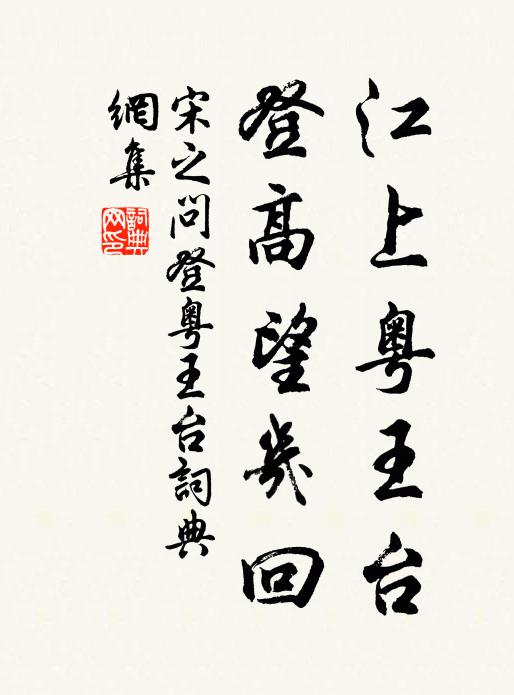 江上粤王台
登高望几回
宋之问登粤王台詞典
網集
詞典网印